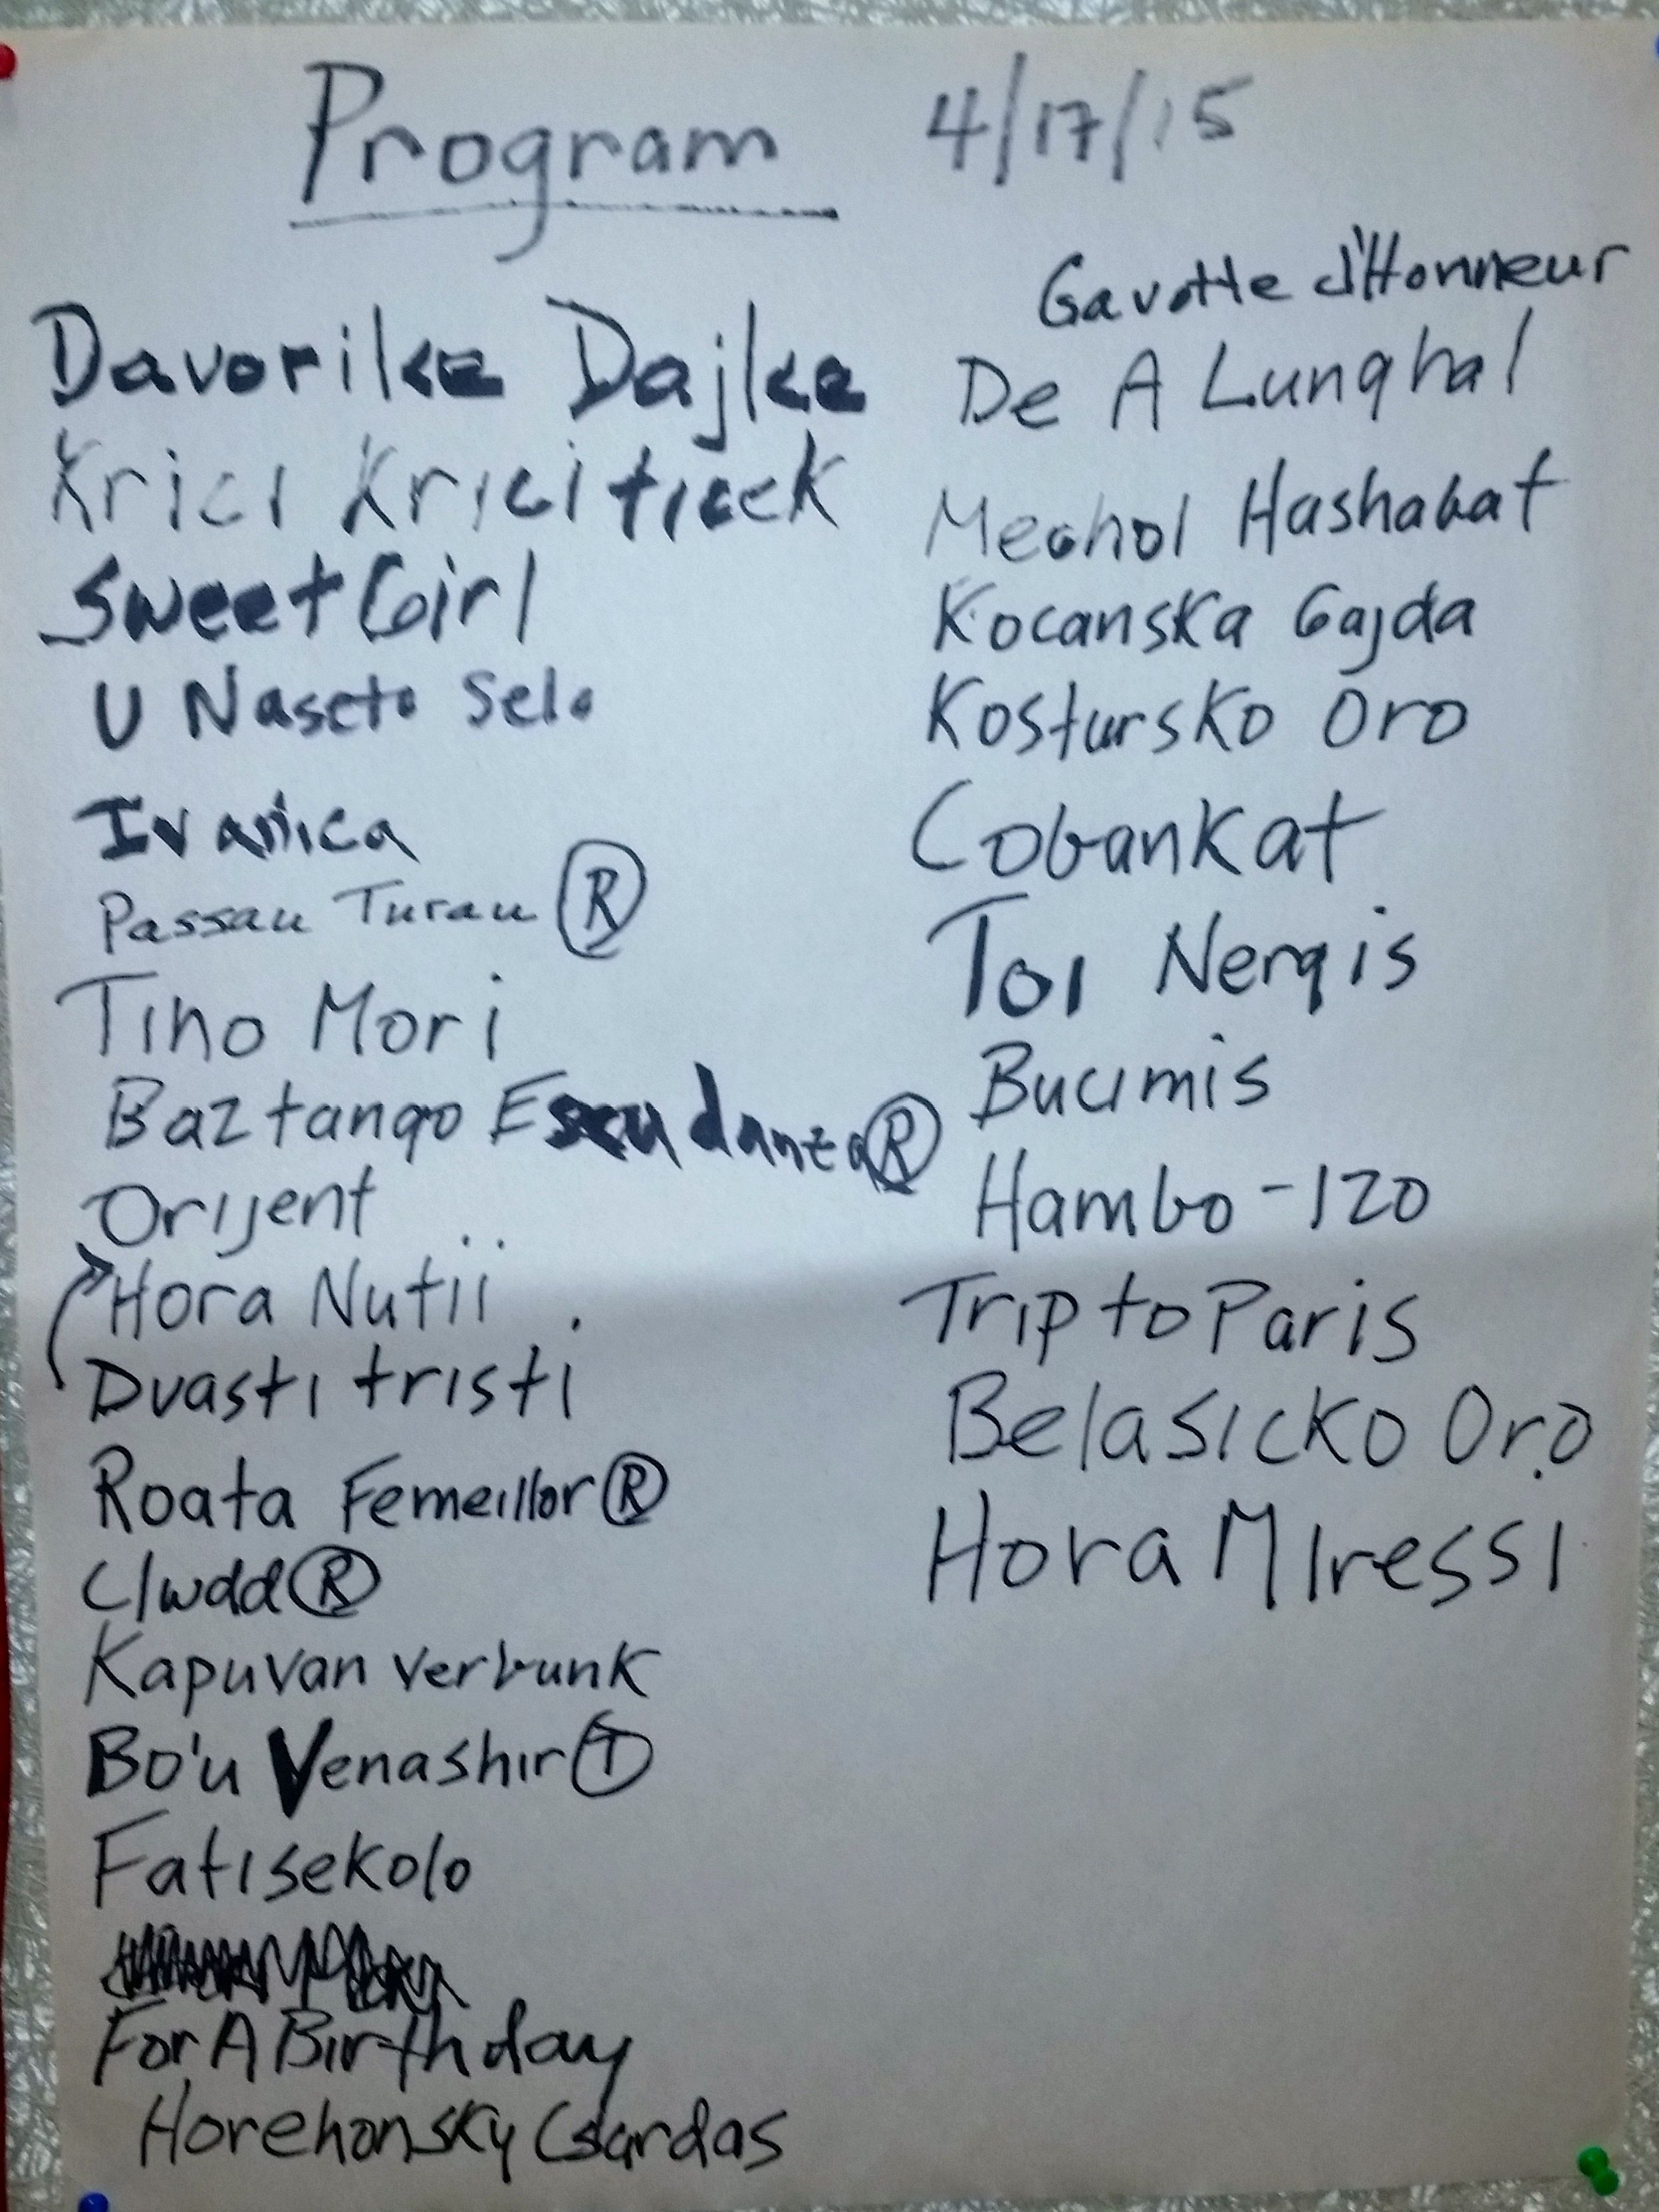 Program 4/17/15
Davorike Dajke
Krici Krici ticek
Sweet Girl
U Naseto Selo
Ivanica
Passau Turau Ⓡ
Tino Mori
Baztango Esku danza Ⓡ
Orijent
Hora Nutii
Dvasti tristi
Roata Femeillor Ⓡ
Clwdd Ⓡ
Kapuvan verbunk
Bo'u Venashir Ⓣ
Fatisekolo
For A Birthday
Horehonsky Csardas
Gavotte d'Honneur
De A Lunghal
Mechol Hashabat
Kocanska Gajda
Kostursko Oro
Cobankat
Toi Nergis
Bucimis
Hambo - 120
Trip to Paris
Belasicko Oro
Hora Miressi